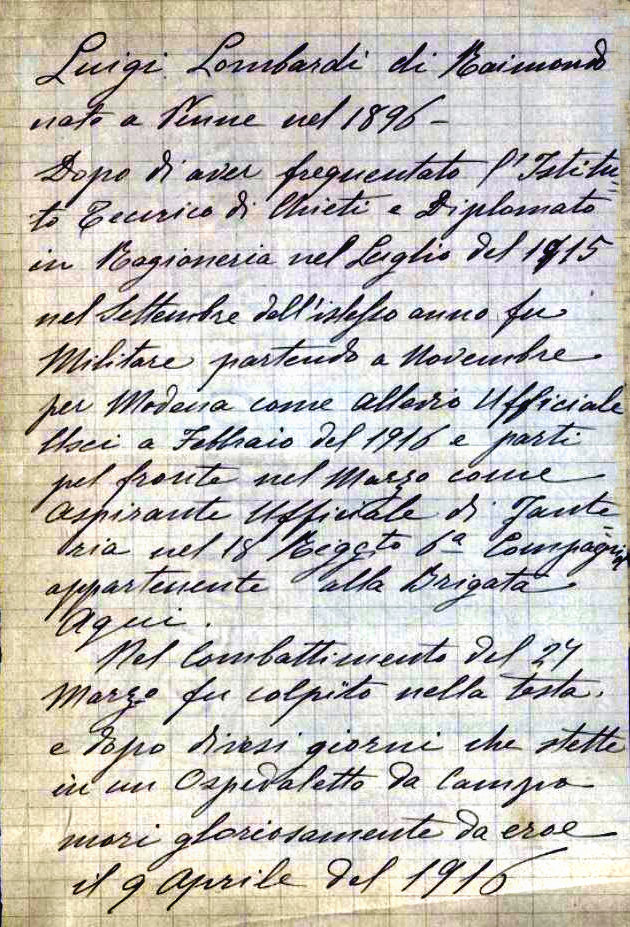 Luigi Lombardi di Raimondo
nato a Penne nel 1896 -
Dopo di aver frequentato l'Istitu=
to Tecnico di Chieti e Diplomato
in Ragioneria nel Luglio del 1915
nel Settembre dell'istesso anno fu
Militare partendo a Novembre
per Modena come allievo Ufficiale
Usci a Febbraio del 1916 e parti
pel fronte nel Marzo come
Aspirante Ufficiale di Fante=
ria nel 18 Regg.to 6a Compagnia
appartenente alla Brigata
Aqui.
Nel Combattimento del 27
Marzo fu colpito nella testa.
e dopo diversi giorni che stette
in un Ospedaletto da Campo
mori gloriosamente da eroe
il 9 Aprile del 1916